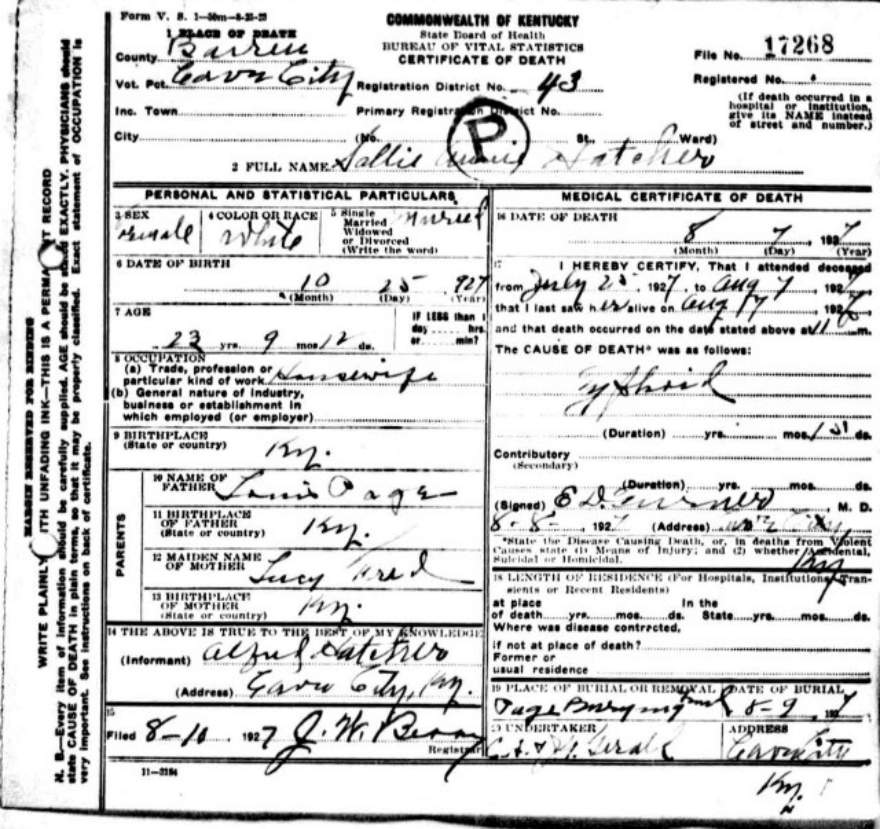 Form V. S. 1—50m—8-25-23
COMMONWEALTH OF KENTUCKY
State Board of Health
BUREAU OF VITAL STATISTICS
CERTIFICATE OF DEATH
File No. 17268
Registered No.
(If death occurred in a
hospital or institution,
give its NAME instead
of street and number.)
1 PLACE OF DEATH
County Barren
Vot. Pct. Cave City Registration District No. 43
Inc. Town Primary Registration District No.
City (No. St. Ward)
P
2 FULL NAME Sallie Annie Hatcher
PERSONAL AND STATISTICAL PARTICULARS
3 SEX
Female
4 COLOR OR RACE
White
5 Single
Married
Widowed
or Divorced
(Write the word)
6 DATE OF BIRTH
10 25 927
(Month) (Day) (Year)
7 AGE
23 yrs. 9 mos. 12 ds.
IF LESS than 1
day hrs.
or min?
8 OCCUPATION
(a) Trade, profession or
particular kind of work Housewife
(b) General nature of industry,
business or establishment in
which employed (or employer)
9 BIRTHPLACE
(State or country)
Ky.
PARENTS
10 NAME OF
FATHER Louis Page
11 BIRTHPLACE
OF FATHER
(State or country)
Ky.
12 MAIDEN NAME
OF MOTHER Lucy
13 BIRTHPLACE
OF MOTHER
(State or country)
Ky.
14 THE ABOVE IS TRUE TO THE BEST OF MY KNOWLEDGE
(Informant) Hatcher
(Address) Cave City, Ky.
15
Filed 8-10 1927 J. W. Berry
Registrar
11—3184
MEDICAL CERTIFICATE OF DEATH
16 DATE OF DEATH
8 7 1927
(Month) (Day) (Year)
17
I HEREBY CERTIFY, That I attended deceased
from July 25 1927, to Aug 7 1927
that I last saw her alive on Aug 7 192
and that death occurred on the date stated above at 11 m.
The CAUSE OF DEATH* was as follows:
Typhoid
(Duration) yrs. mos. ds.
Contributory
(Secondary)
(Duration) yrs. mos. ds.
(Signed) E D Turner M. D.
8-8- 1927 (Address) Cave City,
Ky
*State the Disease Causing Death, or, in deaths from Violent
Causes state (1) Means of Injury; and (2) whether Accidental,
Suicidal or Homicidal.
18 LENGTH OF RESIDENCE (For Hospitals, Institutions, Tran-
sients or Recent Residents)
at place In the
of death yrs. mos. ds. State yrs. mos. ds.
Where was disease contracted,
if not at place of death?
Former or
usual residence
19 PLACE OF BURIAL OR REMOVAL DATE OF BURIAL
Page Burying 8-9 1927
20 UNDERTAKER ADDRESS
Cave City
Ky.
MARGIN RESERVED FOR BINDING
WRITE PLAINLY WITH UNFADING INK—THIS IS A PERMANENT RECORD
N. B.—Every item of information should be carefully supplied. AGE should be stated EXACTLY. PHYSICIANS should
state CAUSE OF DEATH in plain terms, so that it may be properly classified. Exact statement of OCCUPATION is
very important. See instructions on back of certificate.